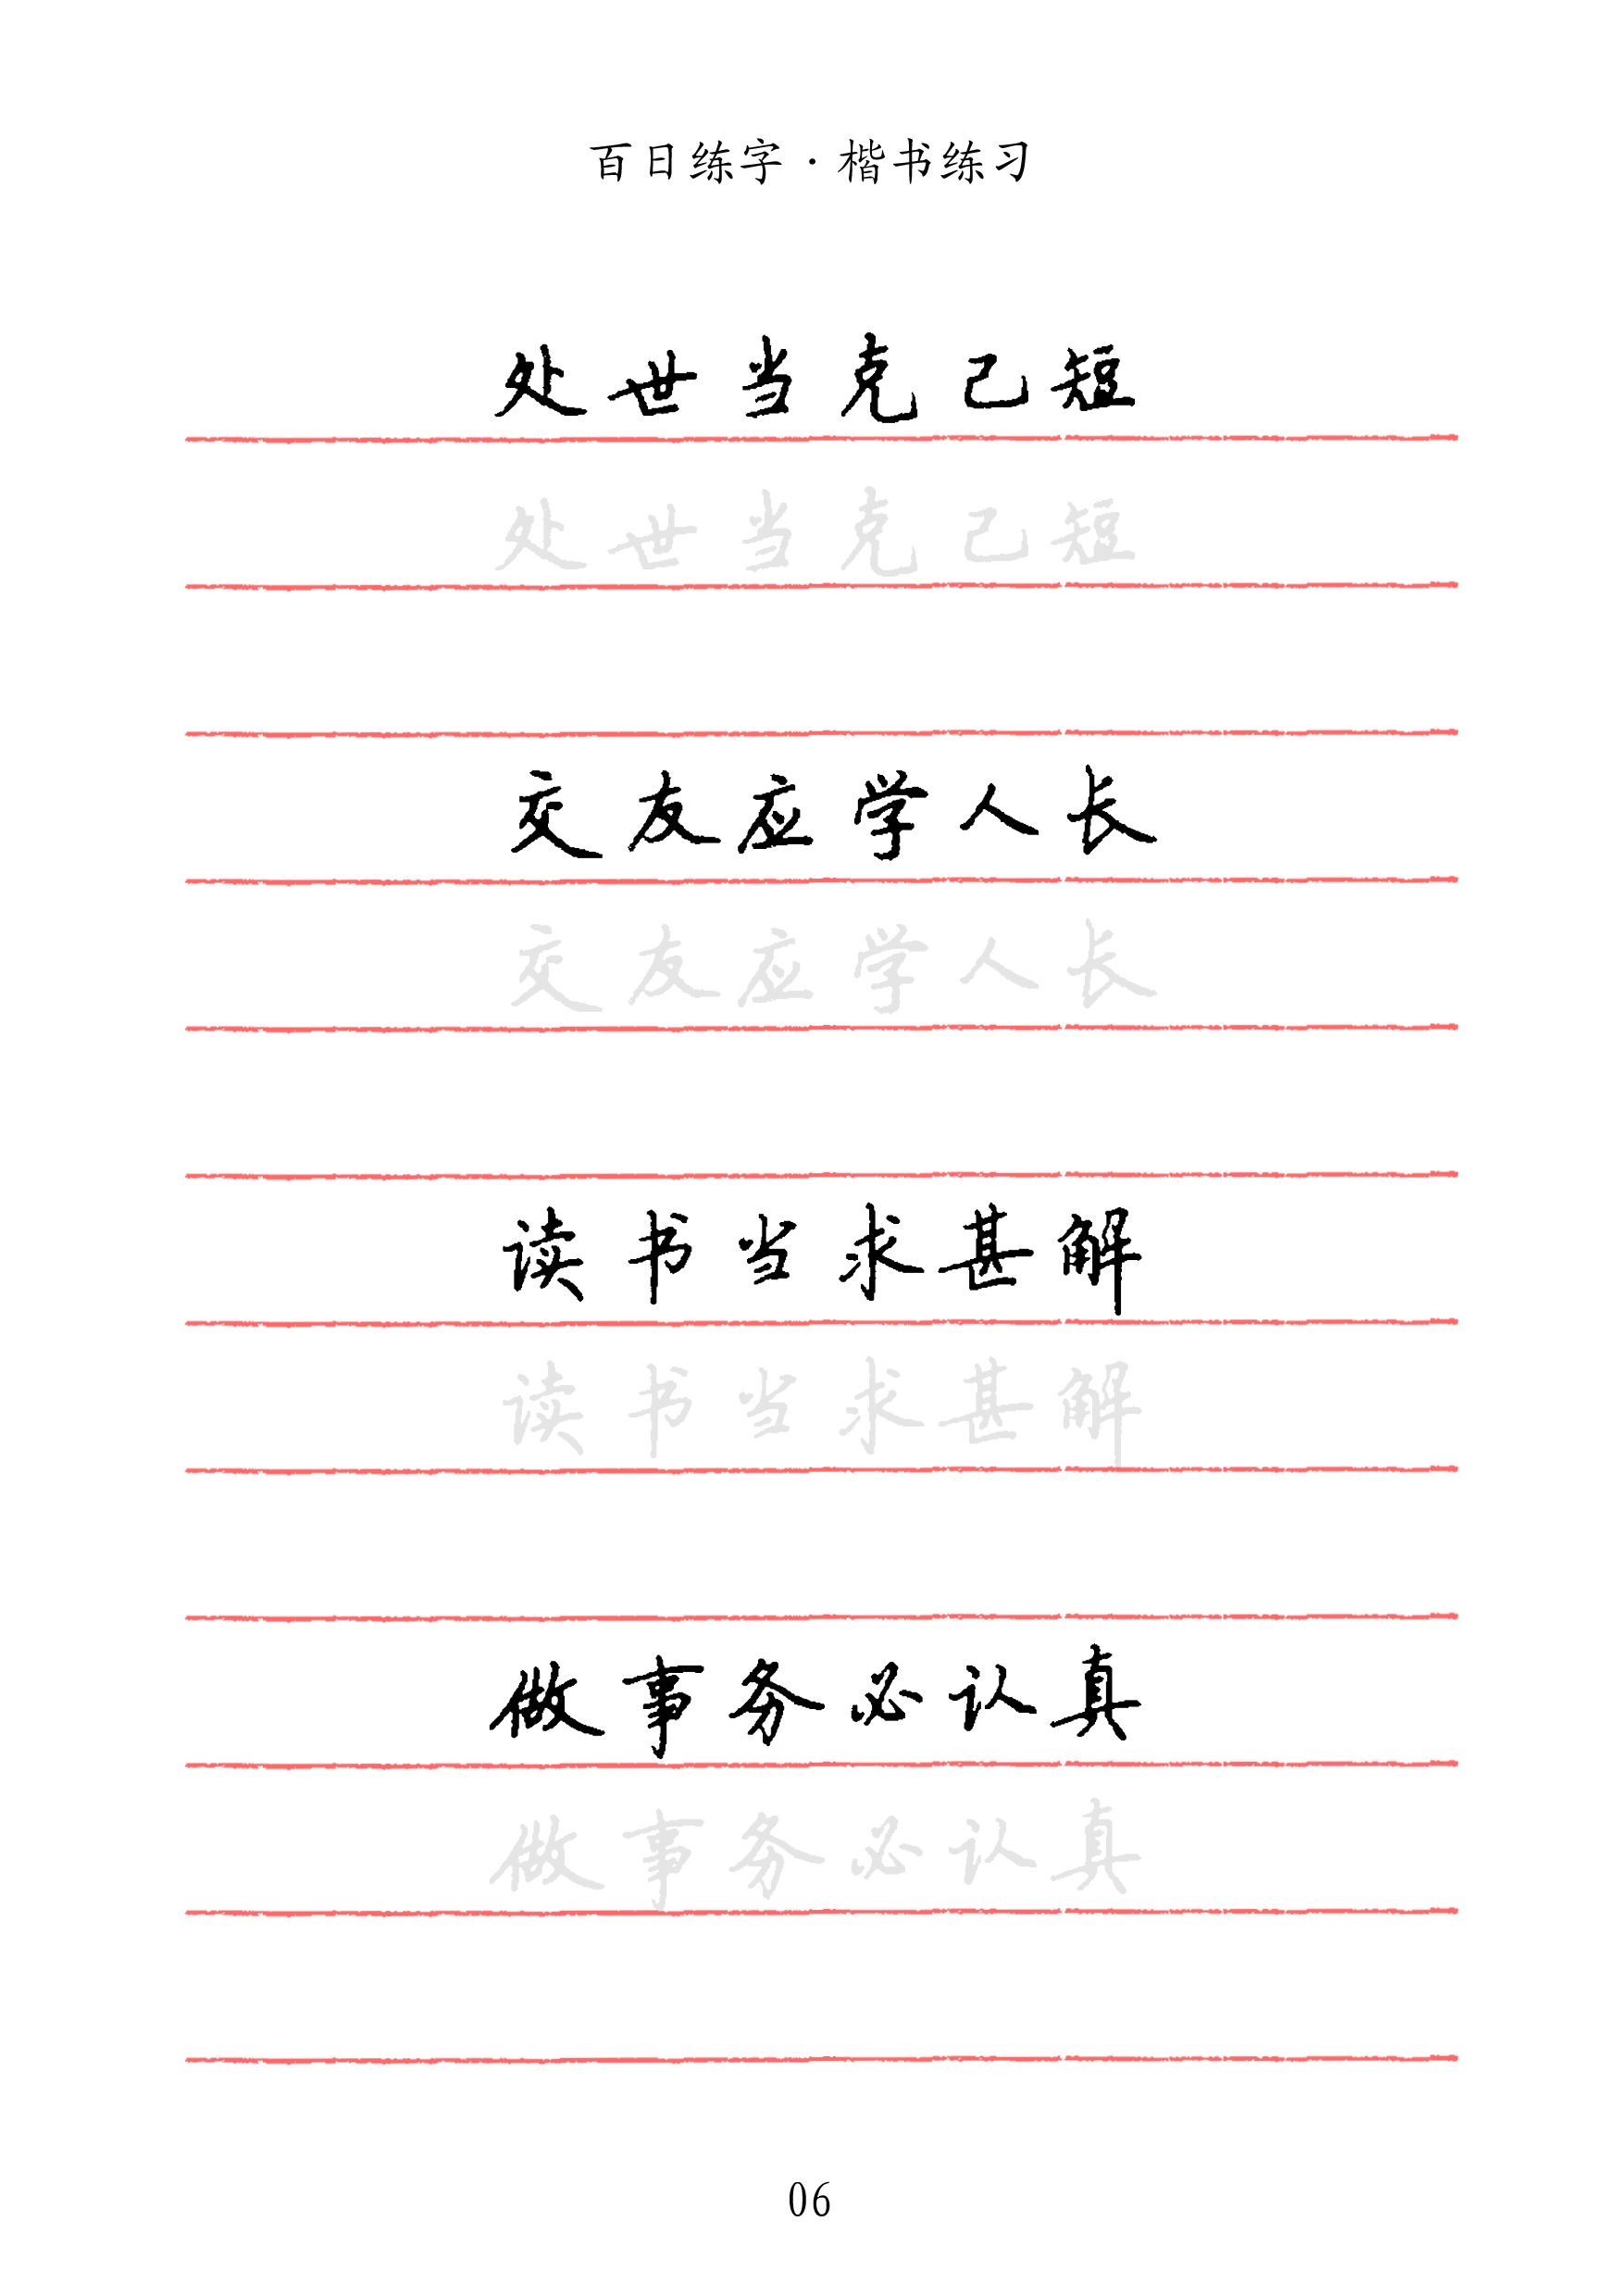 百日练字·楷书练习
处世当克己短
处世当克己短
交友应学人长
交友应学人长
读书当求甚解
读书当求甚解
做事务必认真
做事务必认真
06